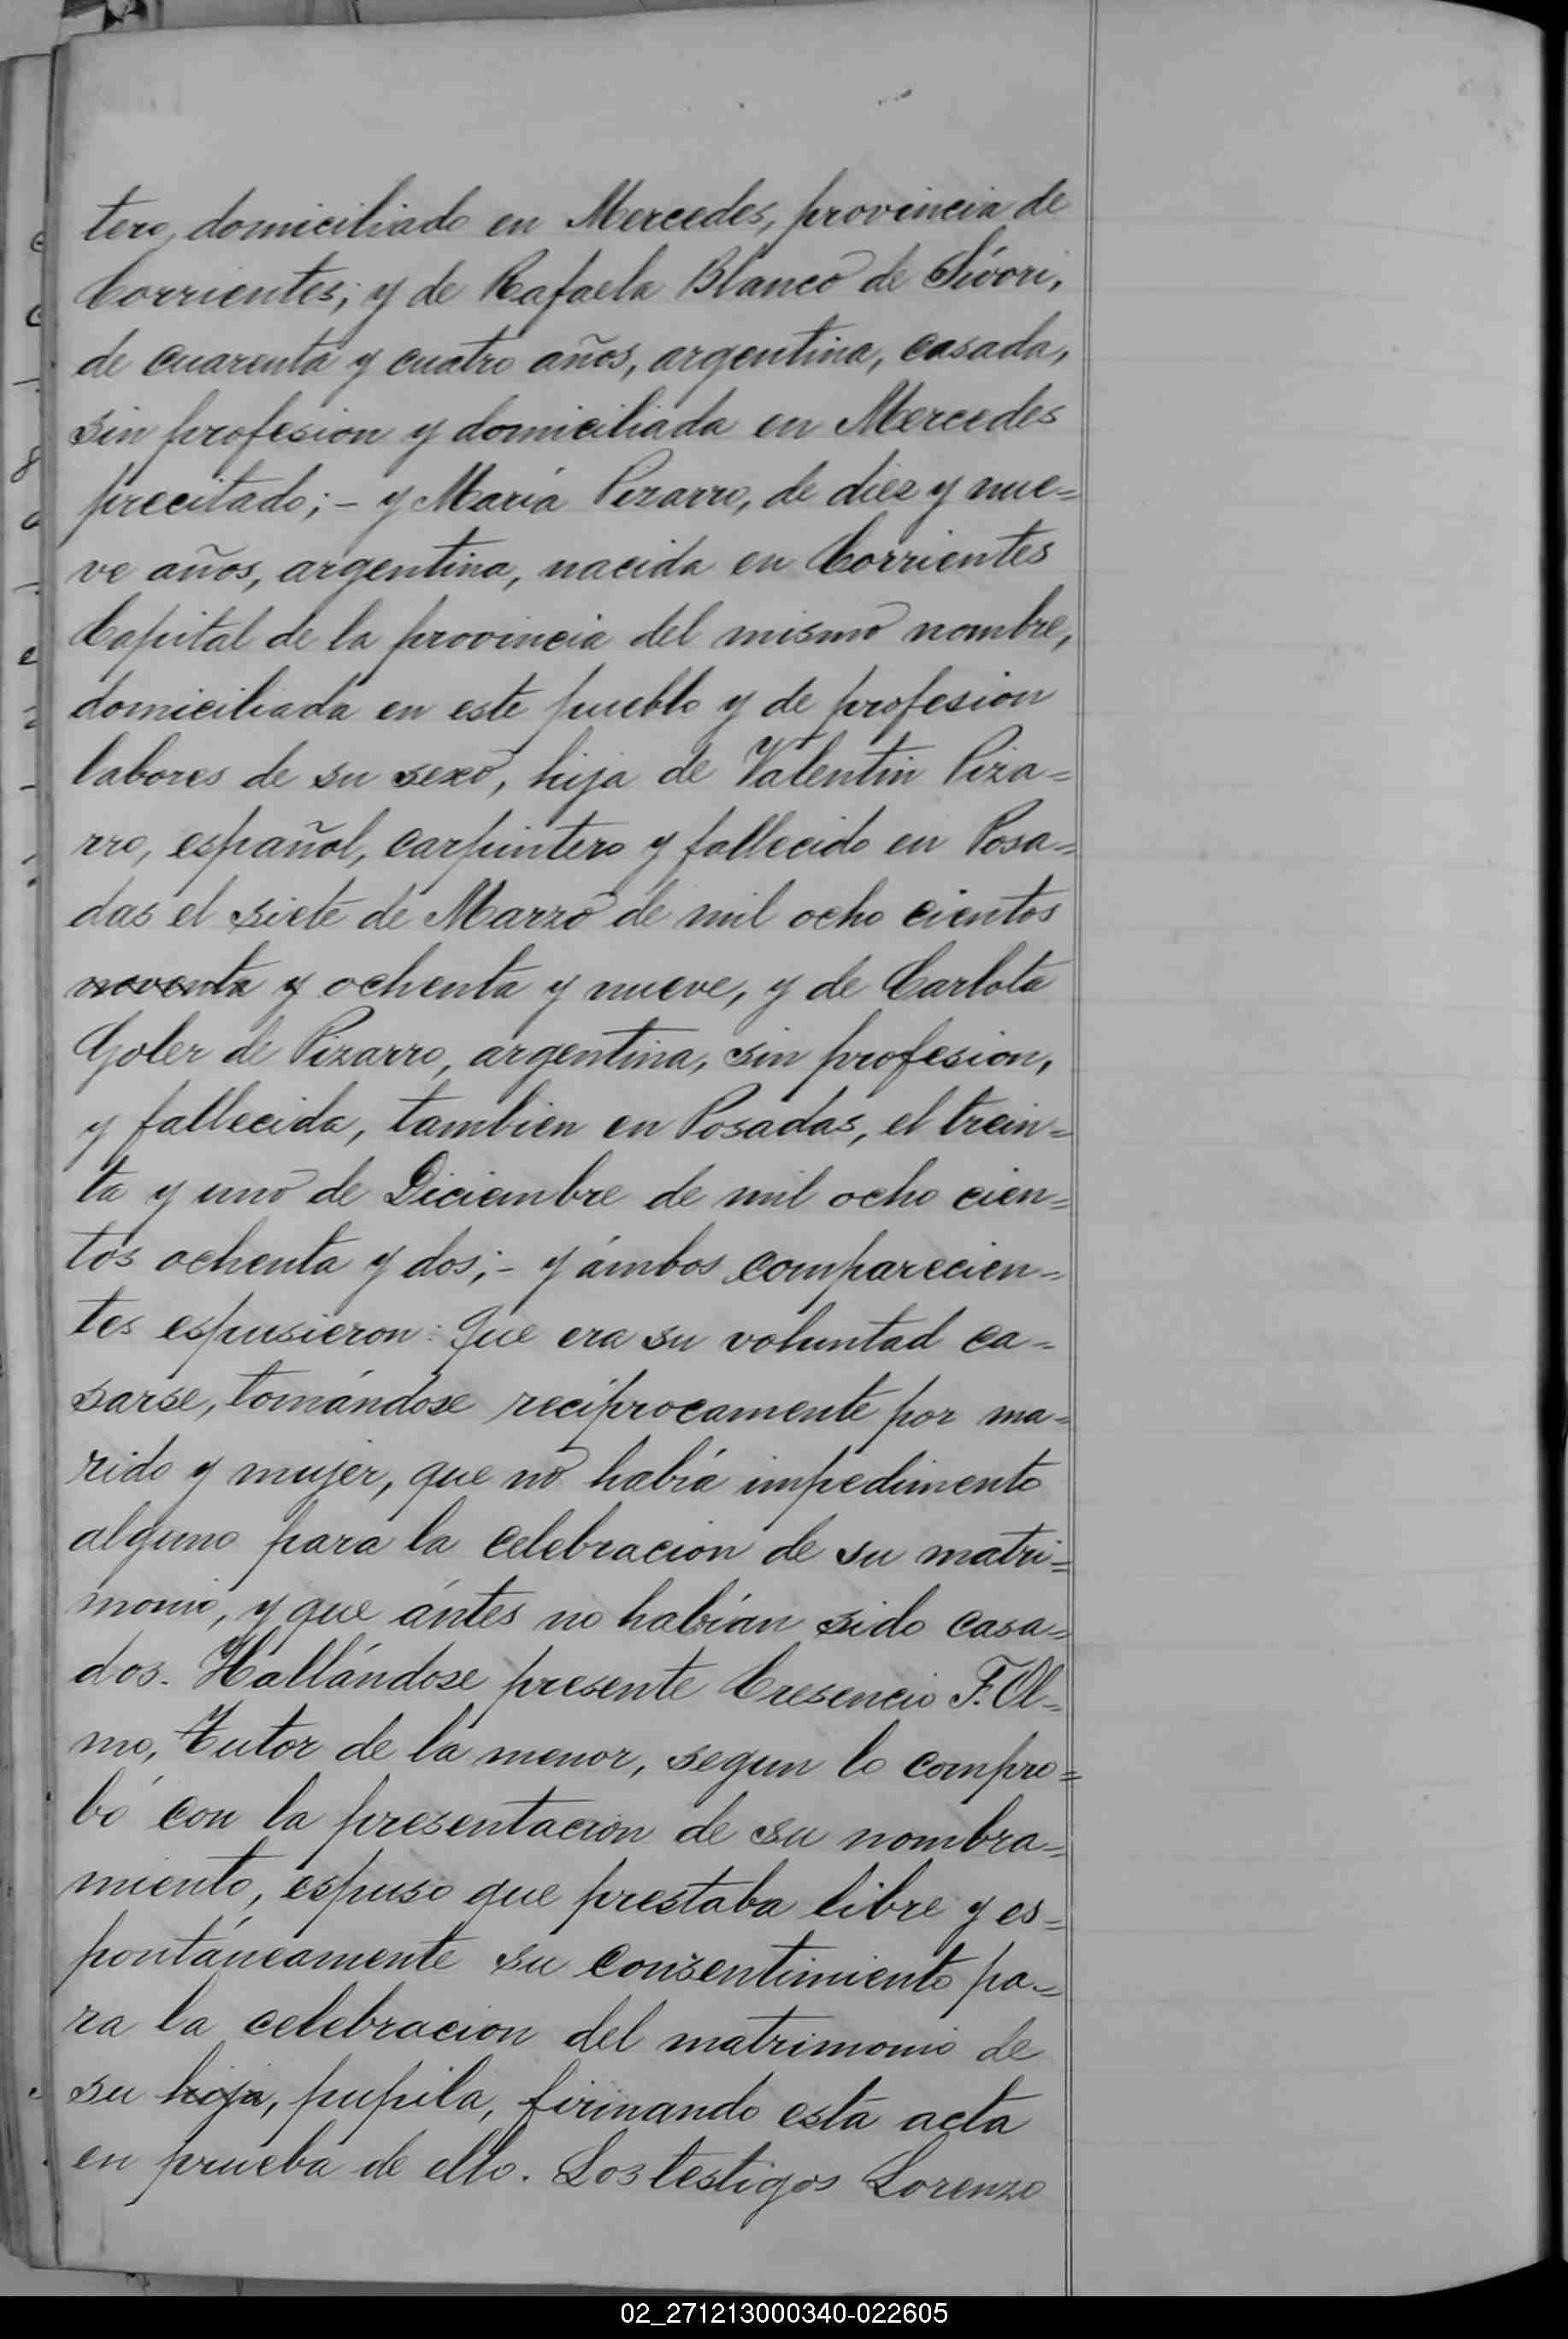 tero, domiciliado en Mercedes, provincia de
Corrientes; y de Rafaela Blanco de Sívori,
de cuarenta y cuatro años, argentina, casada,
sin profesion y domiciliada en Mercedes
precitado; - y María Pizarro, de diez y nue=
ve años, argentina, nacida en Corrientes
Capital de la provincia del mismo nombre,
domiciliada en este pueblo y de profesion
labores de su sexo, hija de Valentin Piza=
rro, español, carpintero y fallecido en Posa=
das el siete de Marzo de mil ocho cientos
noventa y ochenta y nueve, y de Carlota
Goler de Pizarro, argentina, sin profesion,
y fallecida, tambien en Posadas, el trein=
ta y uno de Diciembre de mil ocho cien=
tos ochenta y dos; - y ámbos comparecien=
tes espusieron: Que era su voluntad ca=
sarse, tomándose recíprocamente por ma=
rido y mujer, que no había impedimento
alguno para la celebracion de su matri=
monio, y que ántes no habían sido casa=
dos. Hallándose presente Cresencio F. Ol=
mo, Tutor de la menor, segun lo compro=
bó con la presentacion de su nombra=
miento, espuso que prestaba libre y es=
pontáneamente su consentimiento pa=
ra la celebracion del matrimonio de
su hija, pupila, firmando esta acta
en prueba de ello. Los testigos Lorenzo
02_271213000340-022605